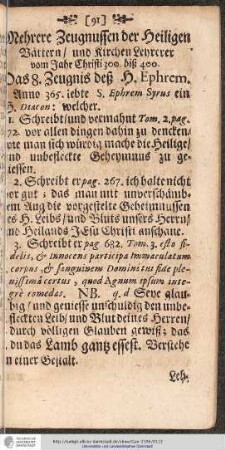 [91]
Mehrere Zeugnussen der Heiligen
Vättern/ und Kirchen Lehrerer
vom Jahr Christi 300. biß 400.
Das 8. Zeugnis deß H. Ephrem.
Anno 365. lebte S. Ephrem Syrus ein
H. Diacon: welcher.
1. Schreibt/und vermahnt Tom. 2. pag.
72. vor allen dingen dahin zu dencken/
wie man sich würdig mache die Heilige/
und unbefleckte Geheymnuß zu ge-
niessen.
2. Schreibt er pag. 267. ich halte nicht
vor gut; das man mit unverschämb-
tem Aug die vorgestelte Geheimnussen
des H. Leibs/ und Bluts unsers Herrn/
und Heilands JEsu Christi anschaue.
3. Schreibt er pag 682. Tom. 3. esto fi-
delis, & innocens participa Immaculatum
corpus & sanguinem Dominitui fide ple-
nissimâ certus, quod Agnum ipsum inte-
grè comedas. NB. q. d Seye glau-
big/ und geniesse unschuldig den unbe-
fleckten Leib/ und Blut deines Herren/
durch völligen Glauben gewiß; das
du das Lamb gantz essest. Verstehe
in einer Gestalt.
Leh-